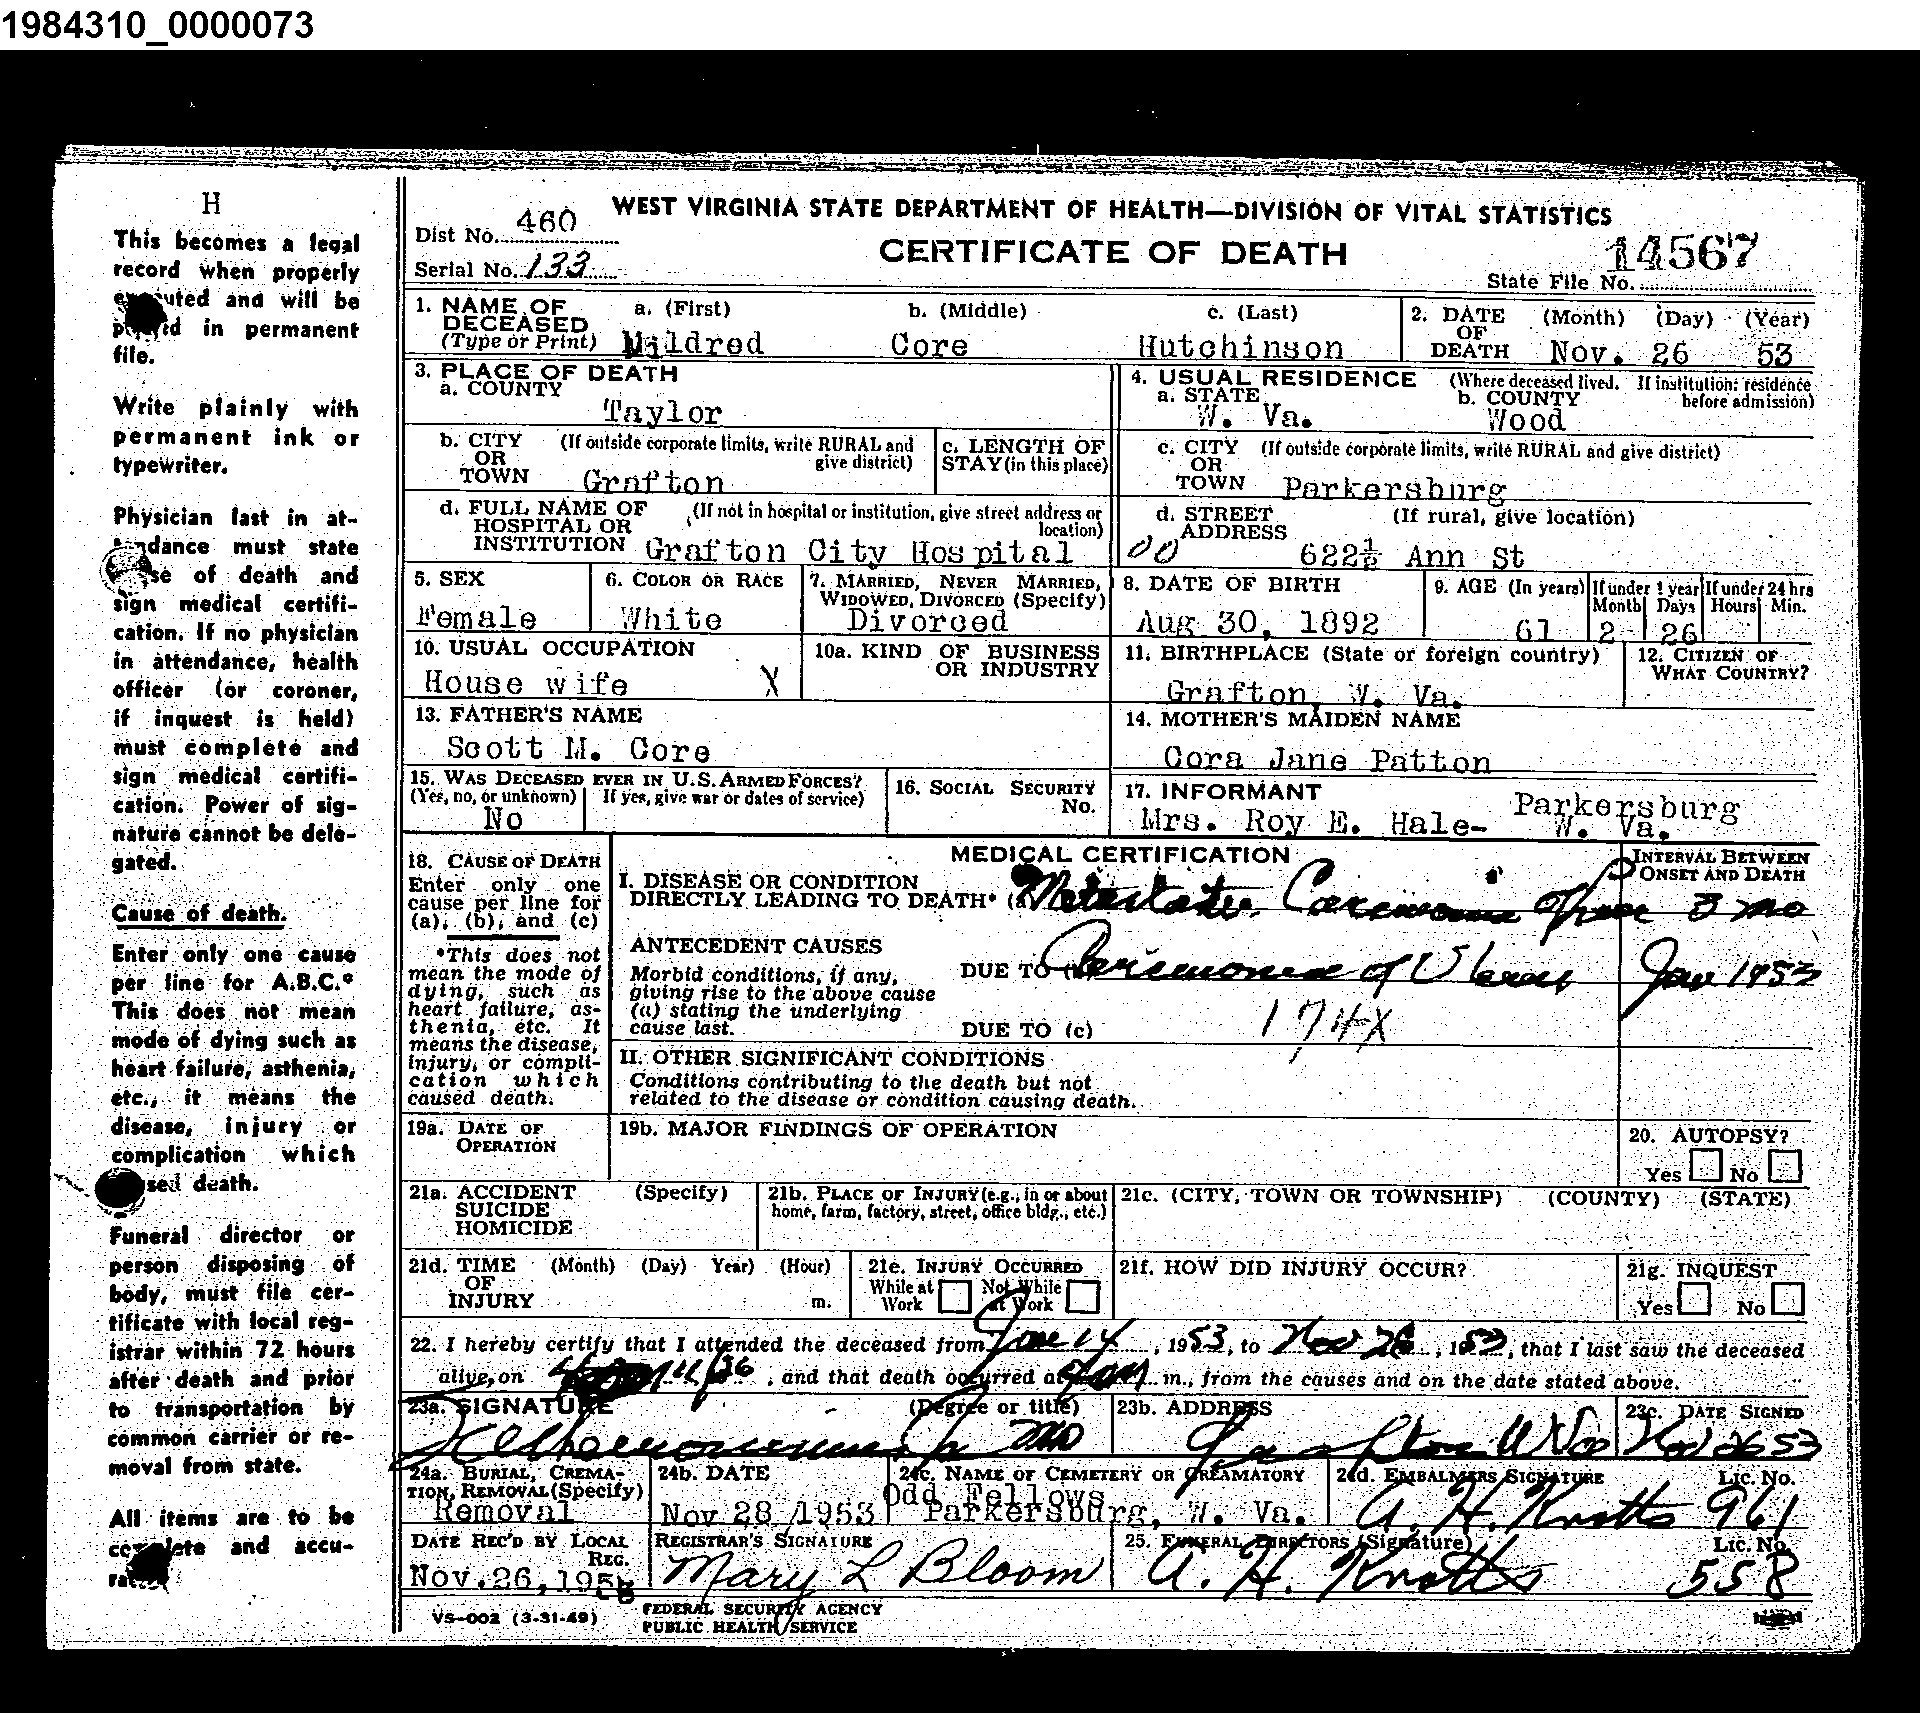 1984310_0000073
H
This becomes a legal
record when properly
and will be
in permanent
file.
Write plainly with
permanent ink or
typewriter.
Physician last in at-
tendance must state
of death and
sign medical certifi-
cation. If no physician
in attendance, health
officer (or coroner,
if inquest is held)
must complete and
sign medical certifi-
cation. Power of sig-
nature cannot be dele-
gated.
Cause of death.
Enter only one cause
per line for A.B.C.*
This does not mean
mode of dying such as
heart failure, asthenia,
etc., it means the
disease, injury or
complication which
death.
Funeral director or
person disposing of
body, must file cer-
tificate with local reg-
istrar within 72 hours
after death and prior
to transportation by
common carrier or re-
moval from state.
All items are to be
and accu-
WEST VIRGINIA STATE DEPARTMENT OF HEALTH—DIVISION OF VITAL STATISTICS
CERTIFICATE OF DEATH
Dist No. 460
Serial No. 133
14567
State File No.
1. NAME OF DECEASED (Type or Print) a. (First) b. (Middle) c. (Last)
Mildred Core Hutchinson
2. DATE OF DEATH (Month) (Day) (Year)
Nov. 26 53
3. PLACE OF DEATH
a. COUNTY
Taylor
4. USUAL RESIDENCE (Where deceased lived. If institution: residence before admission)
a. STATE b. COUNTY
W. Va. Wood
b. CITY OR TOWN (If outside corporate limits, write RURAL and give district)
Grafton
c. LENGTH OF STAY (in this place)
c. CITY OR TOWN (If outside corporate limits, write RURAL and give district)
Parkersburg
d. FULL NAME OF HOSPITAL OR INSTITUTION (If not in hospital or institution, give street address or location)
Grafton City Hospital
d. STREET ADDRESS (If rural, give location)
00 622½ Ann St
5. SEX
Female
6. COLOR OR RACE
White
7. MARRIED, NEVER MARRIED, WIDOWED, DIVORCED (Specify)
Divorced
8. DATE OF BIRTH
Aug 30, 1892
9. AGE (In years) If under 1 year If under 24 hrs
Month Days Hours Min.
61 2 26
10. USUAL OCCUPATION
House wife X
10a. KIND OF BUSINESS OR INDUSTRY
11. BIRTHPLACE (State or foreign country)
Grafton, W. Va.
12. CITIZEN OF WHAT COUNTRY?
13. FATHER'S NAME
Scott M. Core
14. MOTHER'S MAIDEN NAME
Cora Jane Patton
15. WAS DECEASED EVER IN U.S. ARMED FORCES?
(Yes, no, or unknown) If yes, give war or dates of service)
No
16. SOCIAL SECURITY No.
17. INFORMANT
Mrs. Roy E. Hale- Parkersburg W. Va.
18. CAUSE OF DEATH
Enter only one
cause per line for
(a), (b), and (c)
*This does not
mean the mode of
dying, such as
heart failure, as-
thenia, etc. It
means the disease,
injury, or compli-
cation which
caused death.
MEDICAL CERTIFICATION
INTERVAL BETWEEN ONSET AND DEATH
I. DISEASE OR CONDITION
DIRECTLY LEADING TO DEATH* (a) Carcinoma 3 mo
ANTECEDENT CAUSES
Morbid conditions, if any,
giving rise to the above cause
(a) stating the underlying
cause last.
DUE TO (b) Carcinoma of Uterus Jan 1953
DUE TO (c)
174X
II. OTHER SIGNIFICANT CONDITIONS
Conditions contributing to the death but not
related to the disease or condition causing death.
19a. DATE OF OPERATION
19b. MAJOR FINDINGS OF OPERATION
20. AUTOPSY?
Yes No
21a. ACCIDENT SUICIDE HOMICIDE (Specify)
21b. PLACE OF INJURY (e.g., in or about home, farm, factory, street, office bldg., etc.)
21c. (CITY, TOWN OR TOWNSHIP) (COUNTY) (STATE)
21d. TIME OF INJURY (Month) (Day) Year) (Hour) m.
21e. INJURY OCCURRED
While at Work Not While at Work
21f. HOW DID INJURY OCCUR?
21g. INQUEST
Yes No
22. I hereby certify that I attended the deceased from Jan 14, 1953, to Nov 26, 1953, that I last saw the deceased
alive, on , and that death occurred at m., from the causes and on the date stated above.
23a. SIGNATURE (Degree or title)
MD
23b. ADDRESS
Grafton W Va
23c. DATE SIGNED
Nov 26 53
24a. BURIAL, CREMATION, REMOVAL (Specify)
Removal
24b. DATE
Nov 28, 1953
24c. NAME OF CEMETERY OR CREAMATORY
Odd Fellows
Parkersburg, W. Va.
24d. EMBALMERS SIGNATURE Lic. No.
A. H. Knotts 961
DATE REC'D BY LOCAL REG.
Nov. 26, 1953
REGISTRAR'S SIGNATURE
Mary L Bloom
25. FUNERAL DIRECTORS (Signature) Lic. No.
A. H. Knotts 558
VS-002 (3-31-49)
FEDERAL SECURITY AGENCY
PUBLIC HEALTH SERVICE